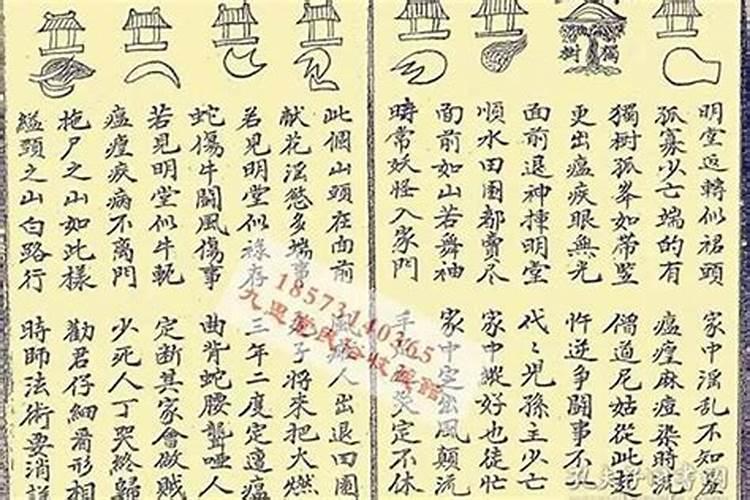 獨樹
明堂返轉似裙頭
家中淫亂不知羞
孤寡少亡端的有
瘟瘟麻痘染時流
獨樹孤峯如帶竪
僧道尼姑從此起
更出瘟疾眼無光
忤逆爭鬪事不
面前退神揀明堂
代々兒孫主少亡
順水田園都賣盡
家中縱好也徒忙
面前如山若舞袖
家中定出風顛流
時常妖怪入家門
手 哭定不休
此個山頭在面前
人出退田園
献花淫慾多端事
子將來把火燃
若見明堂似祿存
三年二度定遭瘟
蛇傷牛鬪風傷事
曲背蛇腰聾啞人
若見明堂似牛軛
定断其家會做賊
瘟瘟疾病不離門
少死人丁哭終歸
拖尸之山如此樣
勸君仔細看形相
縊頭之山白路行
時師法術要消詳
18573140365
民俗收藏館
孔夫子旧书网